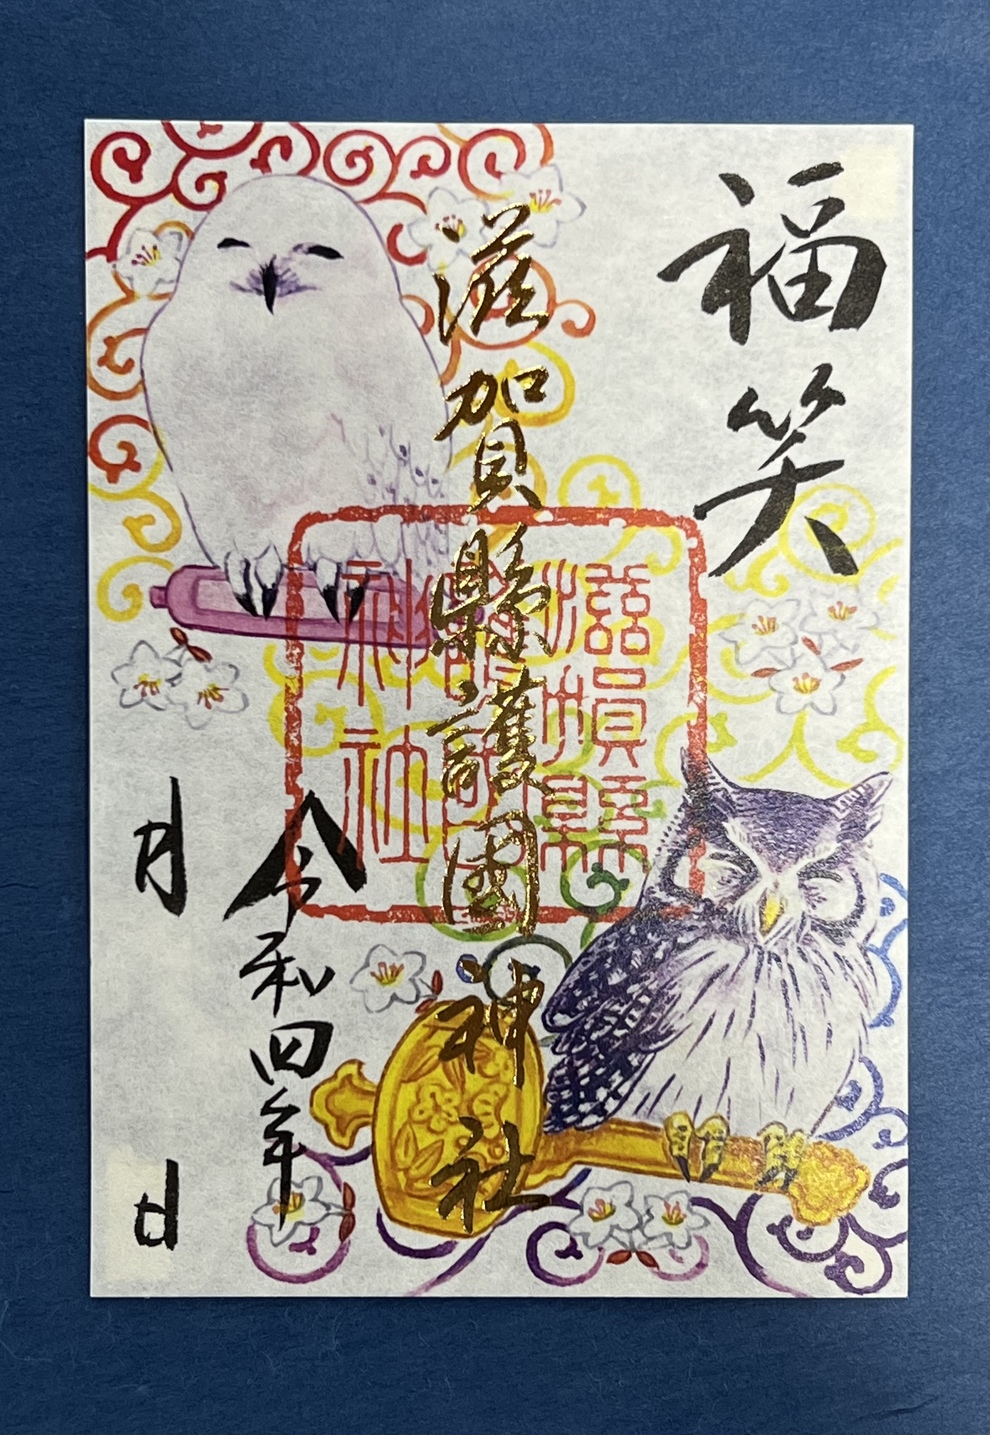 福笑
滋賀縣護國神社
滋賀縣
護國
神社
令和四年
月 日